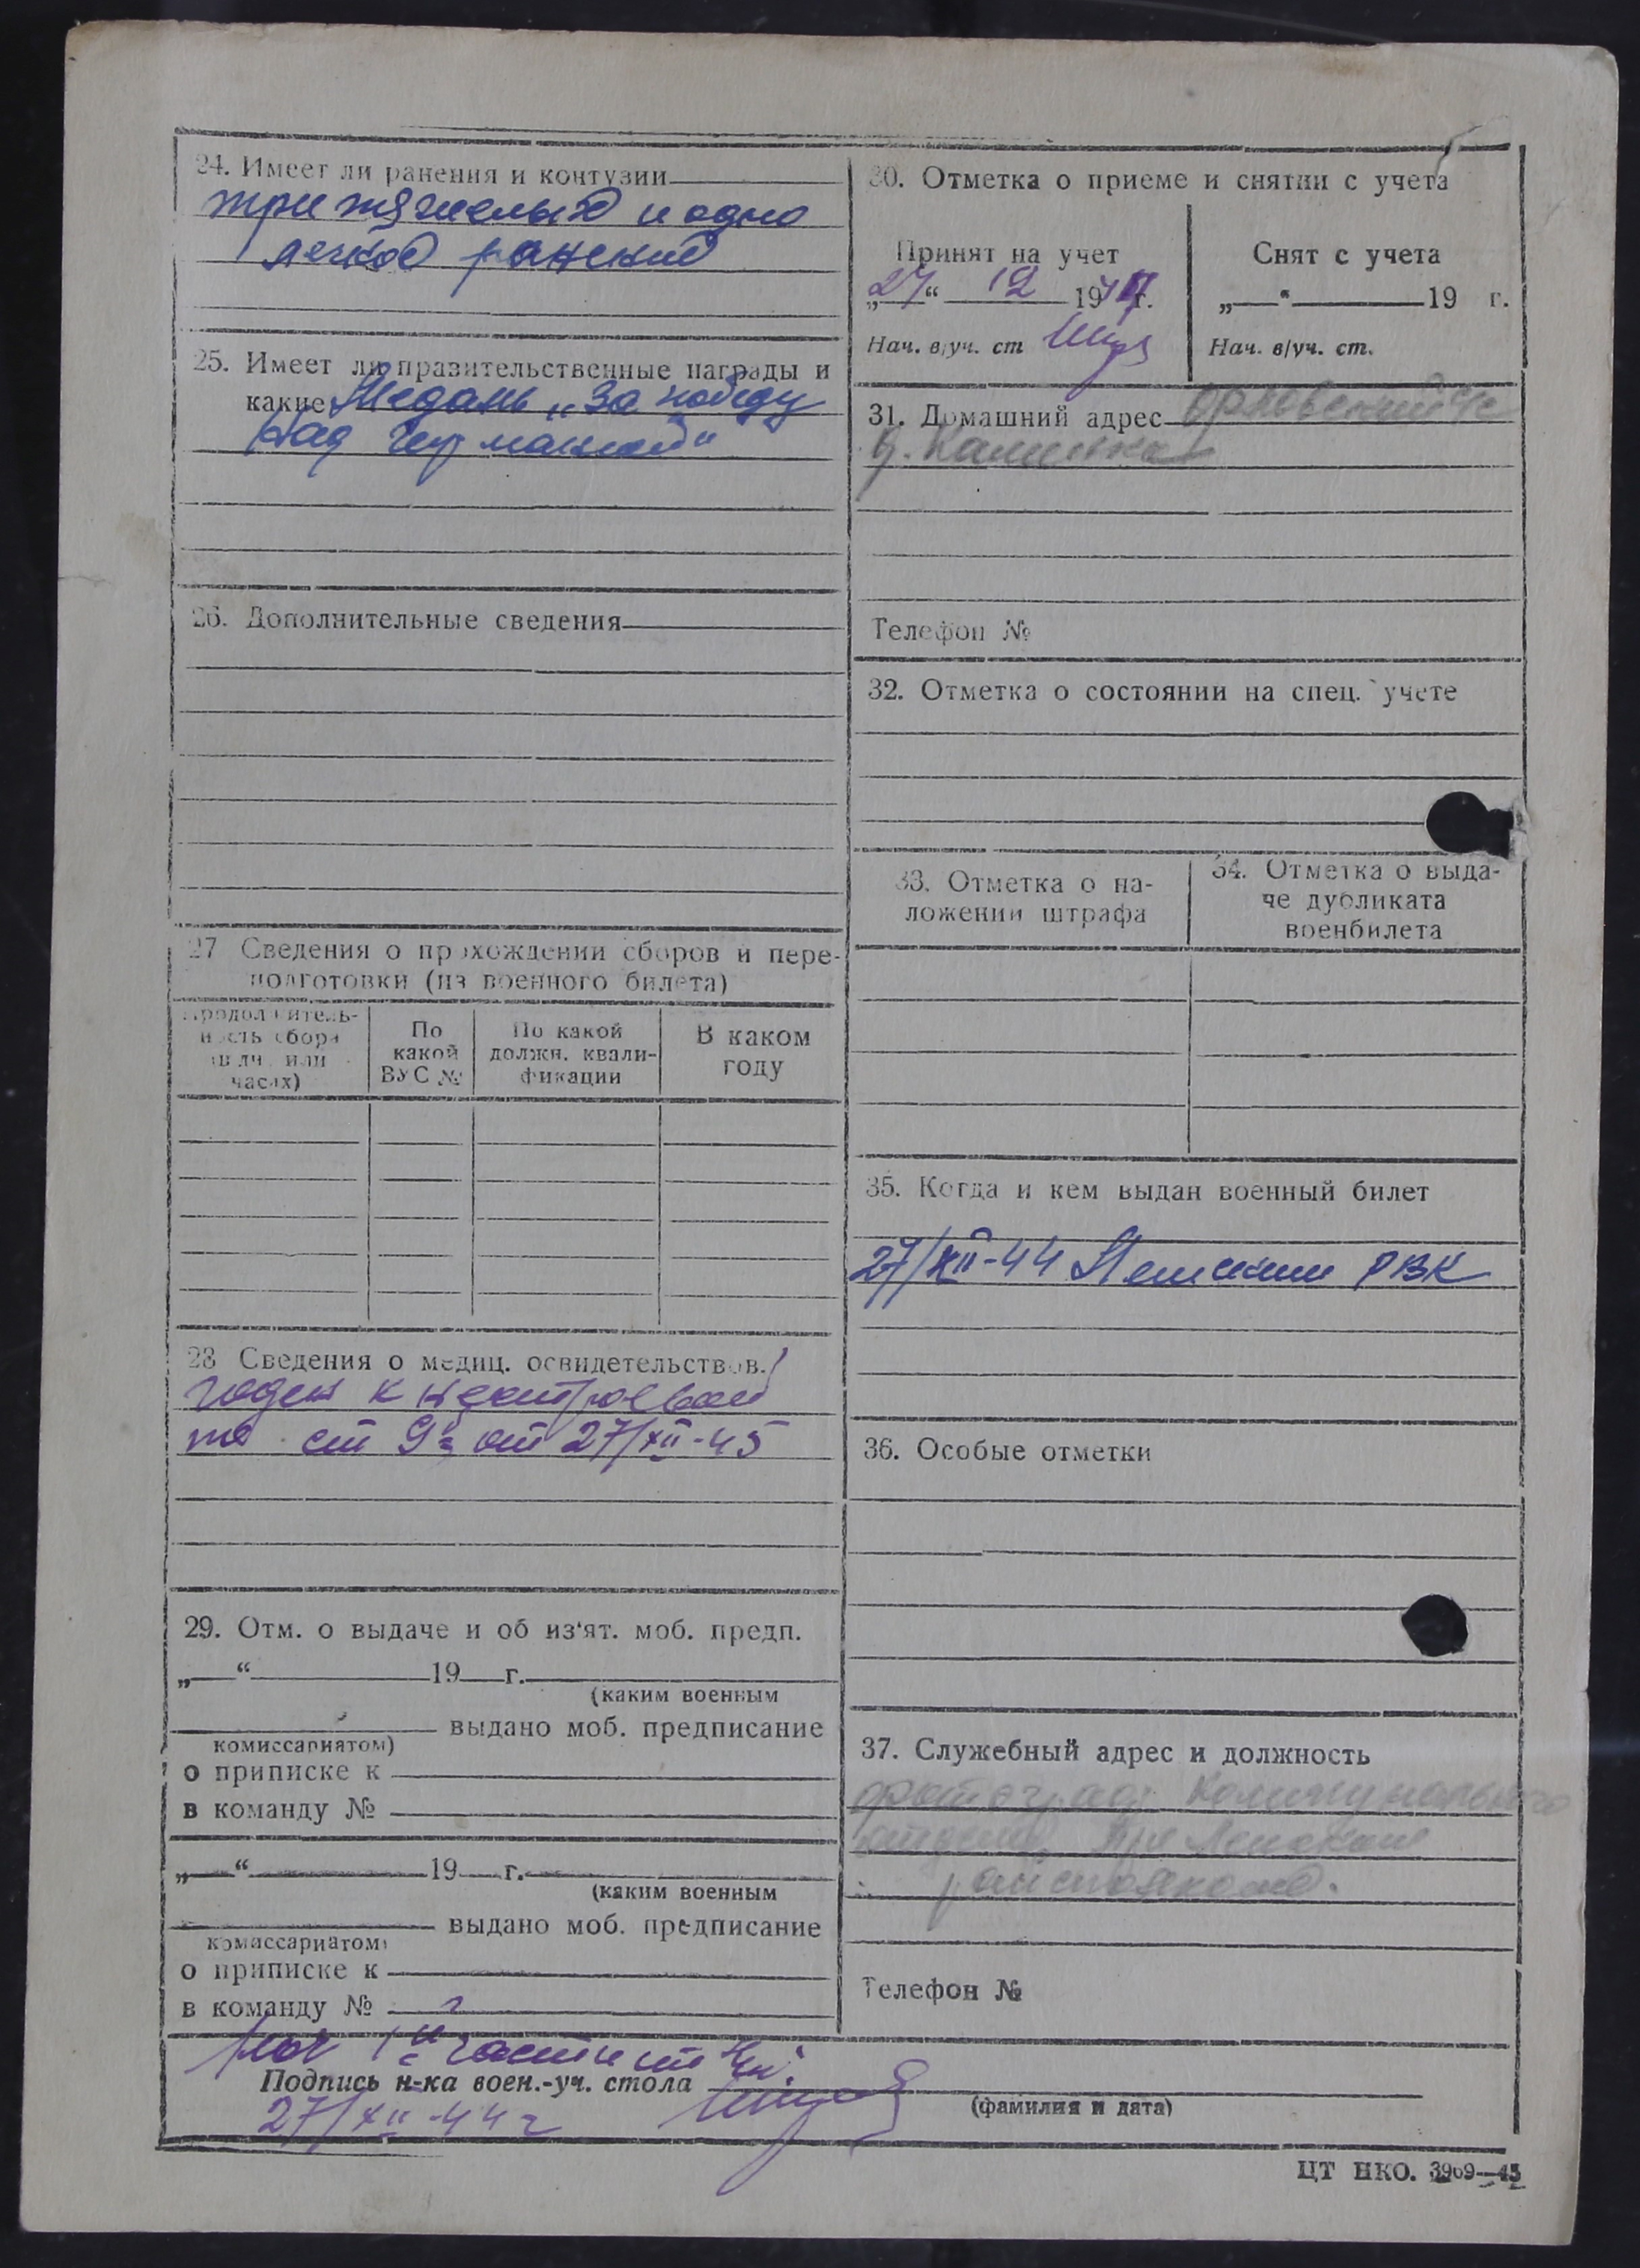 24. Имеет ли ранения и контузии
три тяжелых и одно
легкое ранений
25. Имеет ли правительственные награды и
какие Медаль „За победу
над Германией“
26. Дополнительные сведения
27 Сведения о прохождении сборов и пере-
подготовки (из военного билета)
Продолжитель-
ность сбора
(в дн. или
часах)
По
какой
ВУС №
По какой
должн. квали-
фикации
В каком
году
28 Сведения о медиц. освидетельствов.
годен к нестроевой
по ст 9 от 27/XII-45
29. Отм. о выдаче и об из'ят. моб. предп.
„—“ 19 г.
(каким военным
выдано моб. предписание
комиссариатом)
о приписке к
в команду №
„—“ 19 г.
(каким военным
выдано моб. предписание
комиссариатом)
о приписке к
в команду №
30. Отметка о приеме и снятии с учета
Принят на учет
„27“ 12 194 г.
Нач. в/уч. ст
Снят с учета
„—“ 19 г.
Нач. в/уч. ст.
31. Домашний адрес Орловский с/с
д. Калинка
Телефон №
32. Отметка о состоянии на спец. учете
33. Отметка о на-
ложении штрафа
34. Отметка о выда-
че дубликата
военбилета
35. Когда и кем выдан военный билет
27/XII-44 РВК
36. Особые отметки
37. Служебный адрес и должность
фотограф Коммунального
отдела при
райисполкоме.
Телефон №
Нач 1й части
Подпись н-ка воен.-уч. стола
(фамилия и дата)
27/XII-44 г
ЦТ НКО. 3969—45